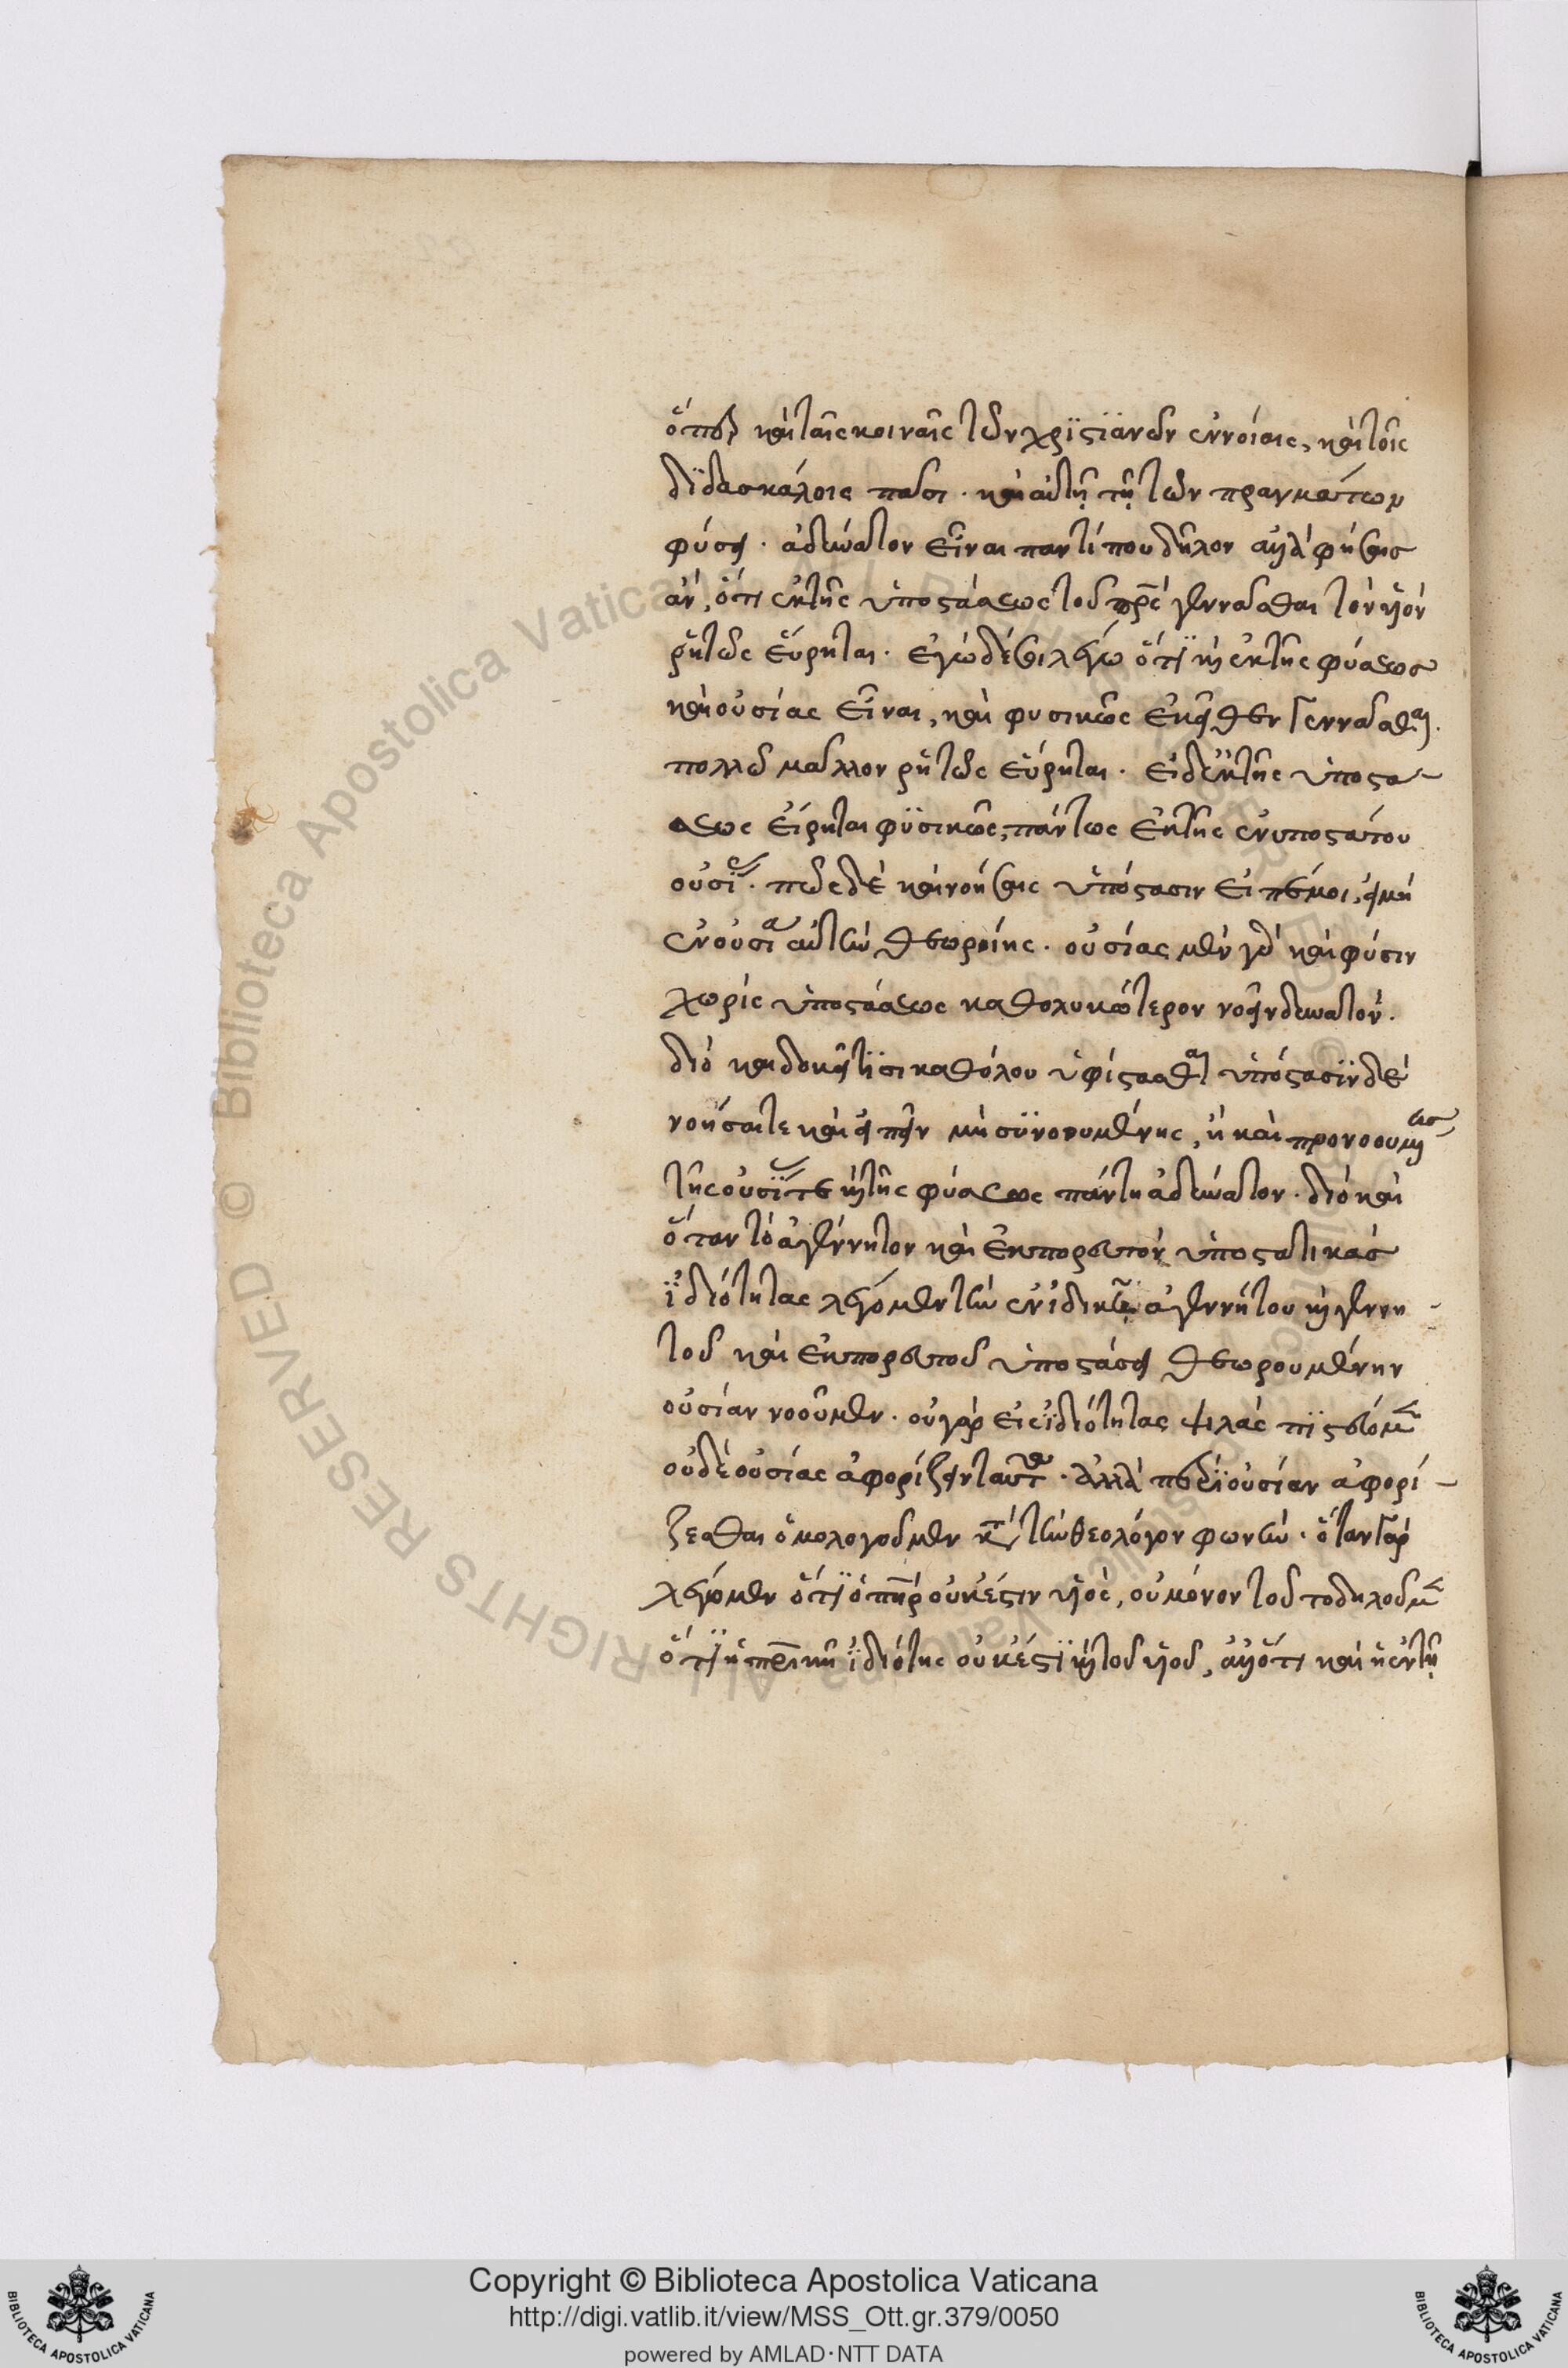 ὅπερ καὶ ταῖς κοιναῖς τῶν χριστιανῶν ἐννοίαις, καὶ τοῖς
διδασκάλοις πᾶσι. καὶ αὐτῇ τῇ τῶν πραγμάτων
φύσει. ἀδύνατον εἶναι παντί που δῆλον ἀλλὰ φήσεις
ἄν, ὅτι ἐκ τῆς ὑποστάσεως τοῦ πρς γεννᾶσθαι τὸν υἱὸν
ῥητῶς εὕρηται. ἐγὼ δέ σοι λέγω ὅτι καὶ ἐκ τῆς φύσεως
καὶ οὐσίας εἶναι, καὶ φυσικῶς ἐκεῖθεν γεννᾶσθαι.
πολλῷ μᾶλλον ῥητῶς εὕρηται. εἰ δὲ ἐκ τῆς ὑποστά-
σεως εἴρηται φυσικῶς, πάντως ἐκ τῆς ἐνυποστάτου
οὐσίας. πῶς δὲ καὶ νοήσεις ὑπόστασιν εἰπέ μοι, εἰ μὴ
ἐν οὐσίᾳ αὐτὴν θεωροίης. οὐσίας μὲν γὰρ καὶ φύσιν
χωρὶς ὑποστάσεως καθολυκώτερον νοεῖν δυνατόν.
διὸ καὶ δοκεῖ τισι καθόλου ὑφίστασθαι ὑπόστασιν δὲ
νοῆσαί τε καὶ εἰπεῖν μὴ συνονυμένης, ἢ καὶ προνοουμένης
τῆς οὐσίας τε καὶ τῆς φύσεως πάντη ἀδύνατον. διὸ καὶ
ὅταν τὸ ἀγέννητον καὶ ἐκπορευτὸν ὑποστατικὰς
ἰδιότητας λέγομεν τὴν ἐν ἰδικῇ ἀγεννήτου καὶ γεννη-
τοῦ καὶ ἐκπορευτοῦ ὑποστάσει θεωρουμένην
οὐσίαν νοοῦμεν. οὐ γὰρ εἰς ἰδιότητας ψιλὰς πιστεύομεν
οὐδὲ οὐσίας ἀφορίζειν ταῦτα. ἀλλὰ περὶ οὐσίαν ἀφορί-
ζεσθαι ὁμολογοῦμεν κατὰ τὴν θεολόγον φωνήν. ὅταν γὰρ
λέγομεν ὅτι ὁ πηρ οὐκ ἔστιν υἱὸς, οὐ μόνον τοῦτο δηλοῦμεν
ὅτι ἡ πρικὴ ἰδιότης οὐκ ἔστι καὶ τοῦ υἱοῦ, ἀλλ' ὅτι καὶ ἡ ἐν τῇ
Copyright © Biblioteca Apostolica Vaticana
http://digi.vatlib.it/view/MSS_Ott.gr.379/0050
powered by AMLAD·NTT DATA